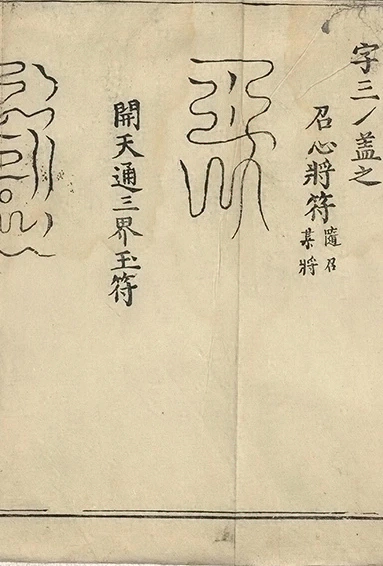 字三丿蓋之
召心將符隨召某將
開天通三界玉符